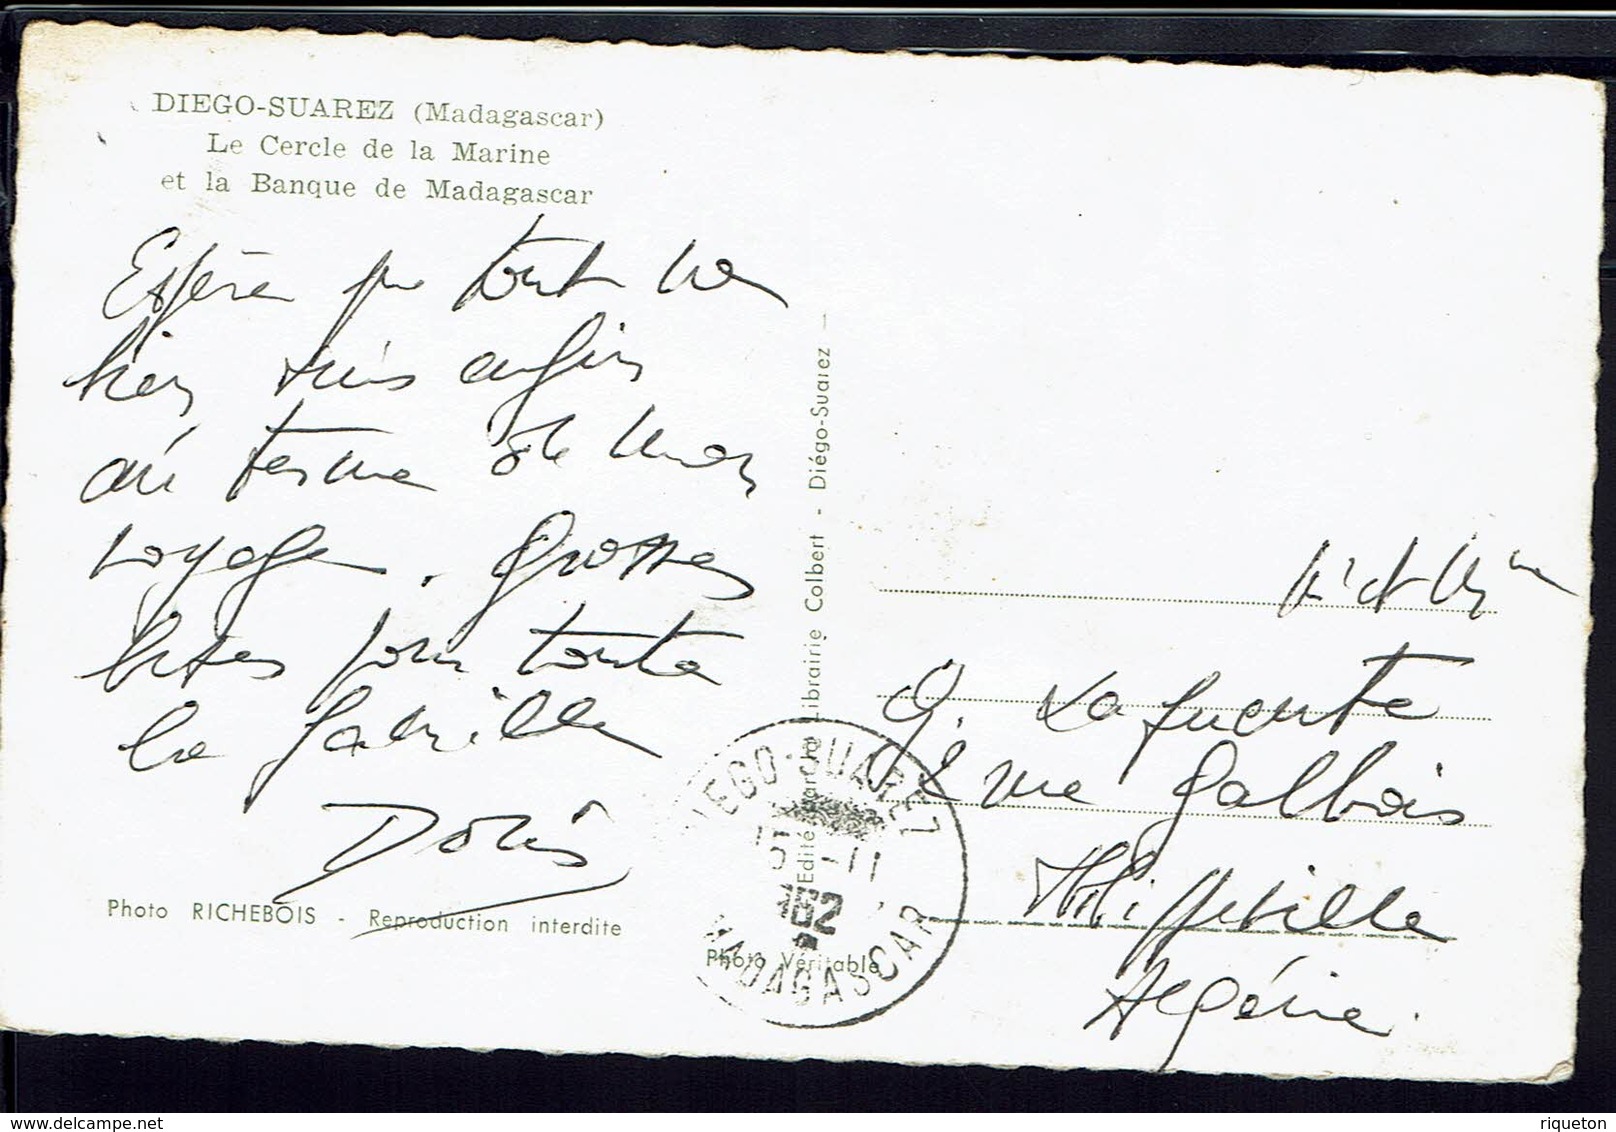 DIEGO-SUAREZ (Madagascar)
Le Cercle de la Marine
et la Banque de Madagascar
Espère que tout va
bien suis enfin
au terme de mon
voyage. Grosses
bises pour toute
la famille
Doris
Photo RICHEBOIS - Reproduction interdite
Edité par la Librairie Colbert - Diégo-Suarez -
Photo Véritable
DIEGO-SUAREZ
15-11
MADAGASCAR
Mr et Mme
G. Lafuente
2 rue Galbois
Philippeville
Algérie.
riqueton